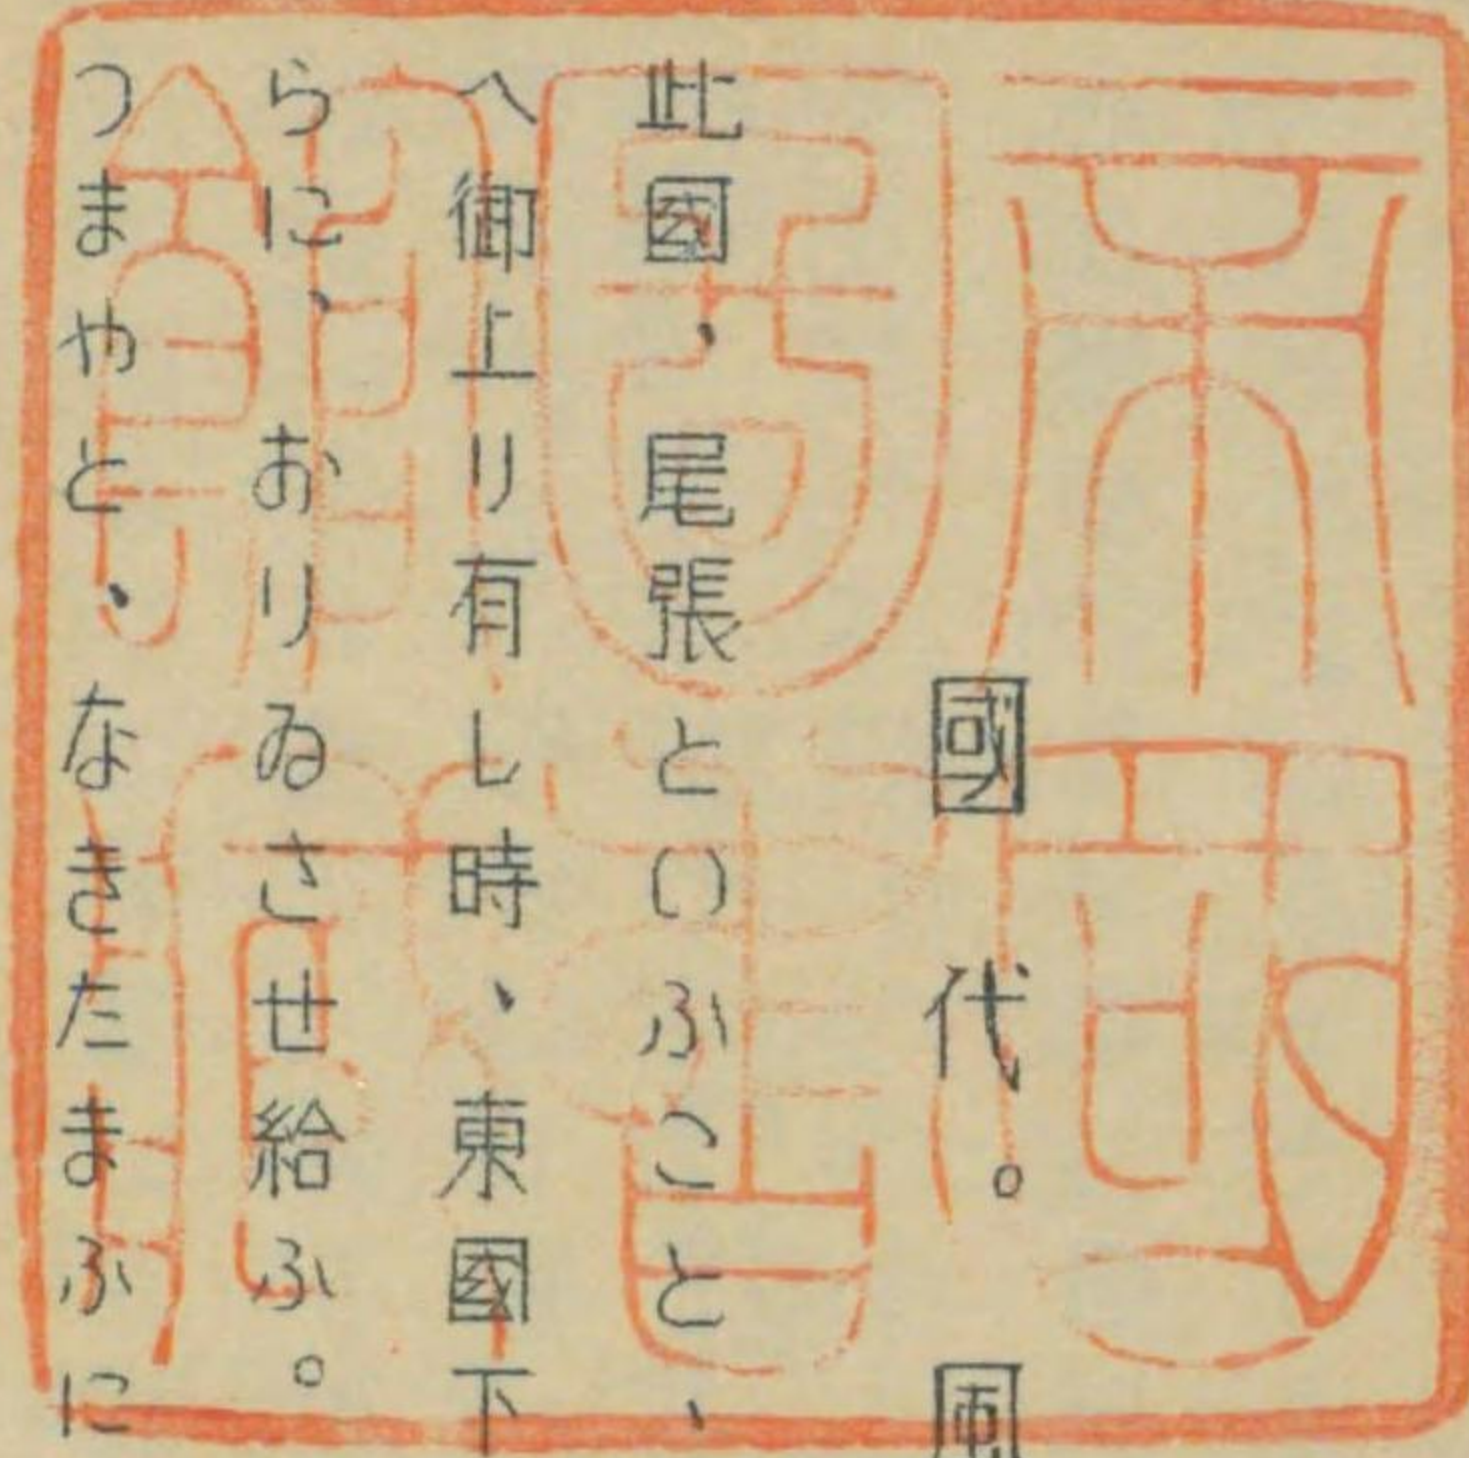 國代。
此國、尾張といふこと、
へ御上り有し時、東國下
らに、おりゐさせ給ふ。
つまやと、なきたまふに
帝國
圖書
館藏